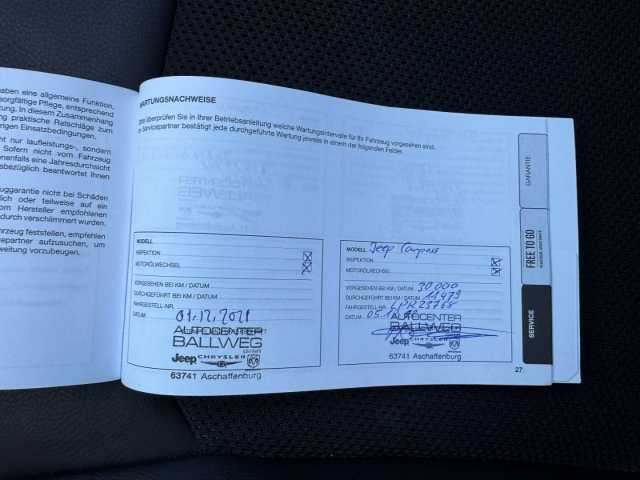 aben eine allgemeine Funktion,
sorgfältige Pflege, entsprechend
zung. In diesem Zusammenhang
ng praktische Ratschläge zum
igen Einsatzbedingungen.
ht nur laufleistungs-, sondern
Sofern nicht vom Fahrzeug
nenfalls eine Jahresdurchsicht
sbezüglich beantwortet Ihnen
uggarantie nicht bei Schäden
lich oder teilweise auf ein
om Hersteller empfohlenen
durch verschlimmert wurden.
hrzeug feststellen, empfehlen
epartner aufzusuchen, um
weitung vorzubeugen.
WARTUNGSNACHWEISE
Bitte überprüfen Sie in Ihrer Betriebsanleitung welche Wartungsintervalle für Ihr Fahrzeug vorgesehen sind.
Servicepartner bestätigt jede durchgeführte Wartung jeweils in einem der folgenden Felder.
MODELL
INSPEKTION
MOTORÖLWECHSEL
VORGESEHEN BEI KM / DATUM
DURCHGEFÜHRT BEI KM / DATUM
FAHRGESTELL-NR.
DATUM 01.12.2021
AUTOCENTER
BALLWEG
Jeep CHRYSLER
63741 Aschaffenburg
MODELL Jeep Compass
INSPEKTION
MOTORÖLWECHSEL
VORGESEHEN BEI KM / DATUM 30.000
DURCHGEFÜHRT BEI KM / DATUM 11479
FAHRGESTELL-NR.
DATUM
AUTOCENTER
BALLWEG
Jeep CHRYSLER
63741 Aschaffenburg
GARANTIE
FREE TO GO
SERVICE
27